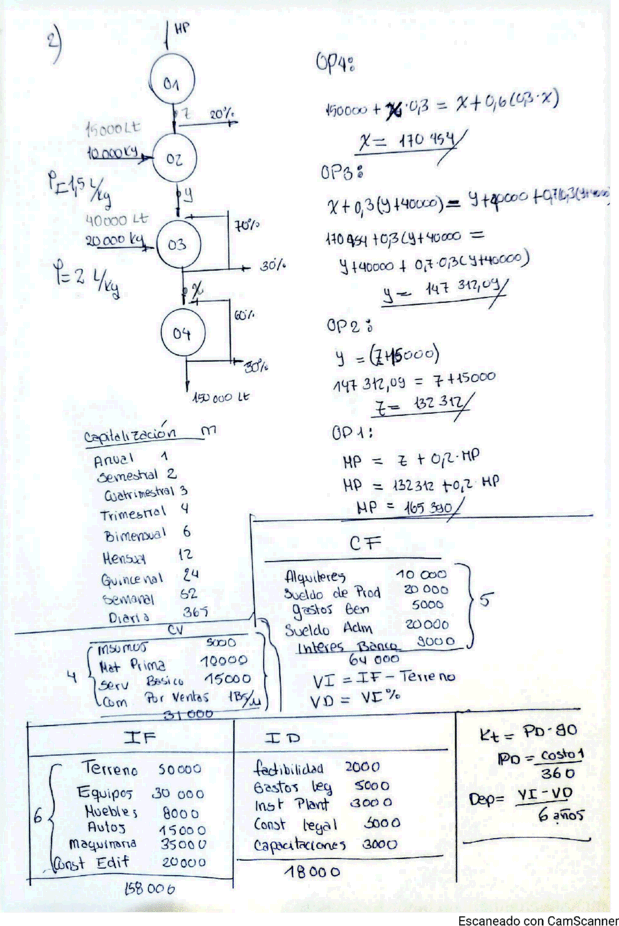 2)
MP
01
Z
20%
15000 Lt
10.000 Kg
02
ρ = 1,5 L/Kg
y
40000 Lt
20000 Kg
03
70%
30%
ρ = 2 L/Kg
x
04
60%
30%
150 000 Lt
OP4:
150000 + x·0,3 = x + 0,6(0,3·x)
x = 170 454
OP3:
x + 0,3(y+40000) = y+40000 + 0,7(0,3(y+40000
170 454 + 0,3(y+40000 =
y+40000 + 0,7·0,3(y+40000)
y = 147 312,09
OP2:
y = (z+15000)
147 312,09 = z + 15000
z = 132 312
OP1:
MP = z + 0,2·MP
MP = 132312 + 0,2·MP
MP = 165 390
Capitalización m
Anual 1
Semestral 2
Cuatrimestral 3
Trimestral 4
Bimensual 6
Mensual 12
Quincenal 24
Semanal 52
Diaria 365
CF
Alquileres 10 000
Sueldo de Prod 20 000
gastos Gen 5000
Sueldo Adm 20000
Interes Banco 9000
64 000
5
VI = IF - Terreno
VD = VI%
CV
4
Insumos 5000
Mat Prima 10000
Serv Basico 15000
Com Por Ventas 1BS/u
31 000
IF
6
Terreno 50000
Equipos 30 000
Muebles 8000
Autos 15000
Maquinaria 35000
Const Edif 20000
158 000
ID
factibilidad 2000
Gastos leg 5000
Inst Plant 3000
Const legal 5000
Capacitaciones 3000
18 000
Kt = PD·90
PD = costo1 / 360
Dep = VI - VD / 6 años
Escaneado con CamScanner